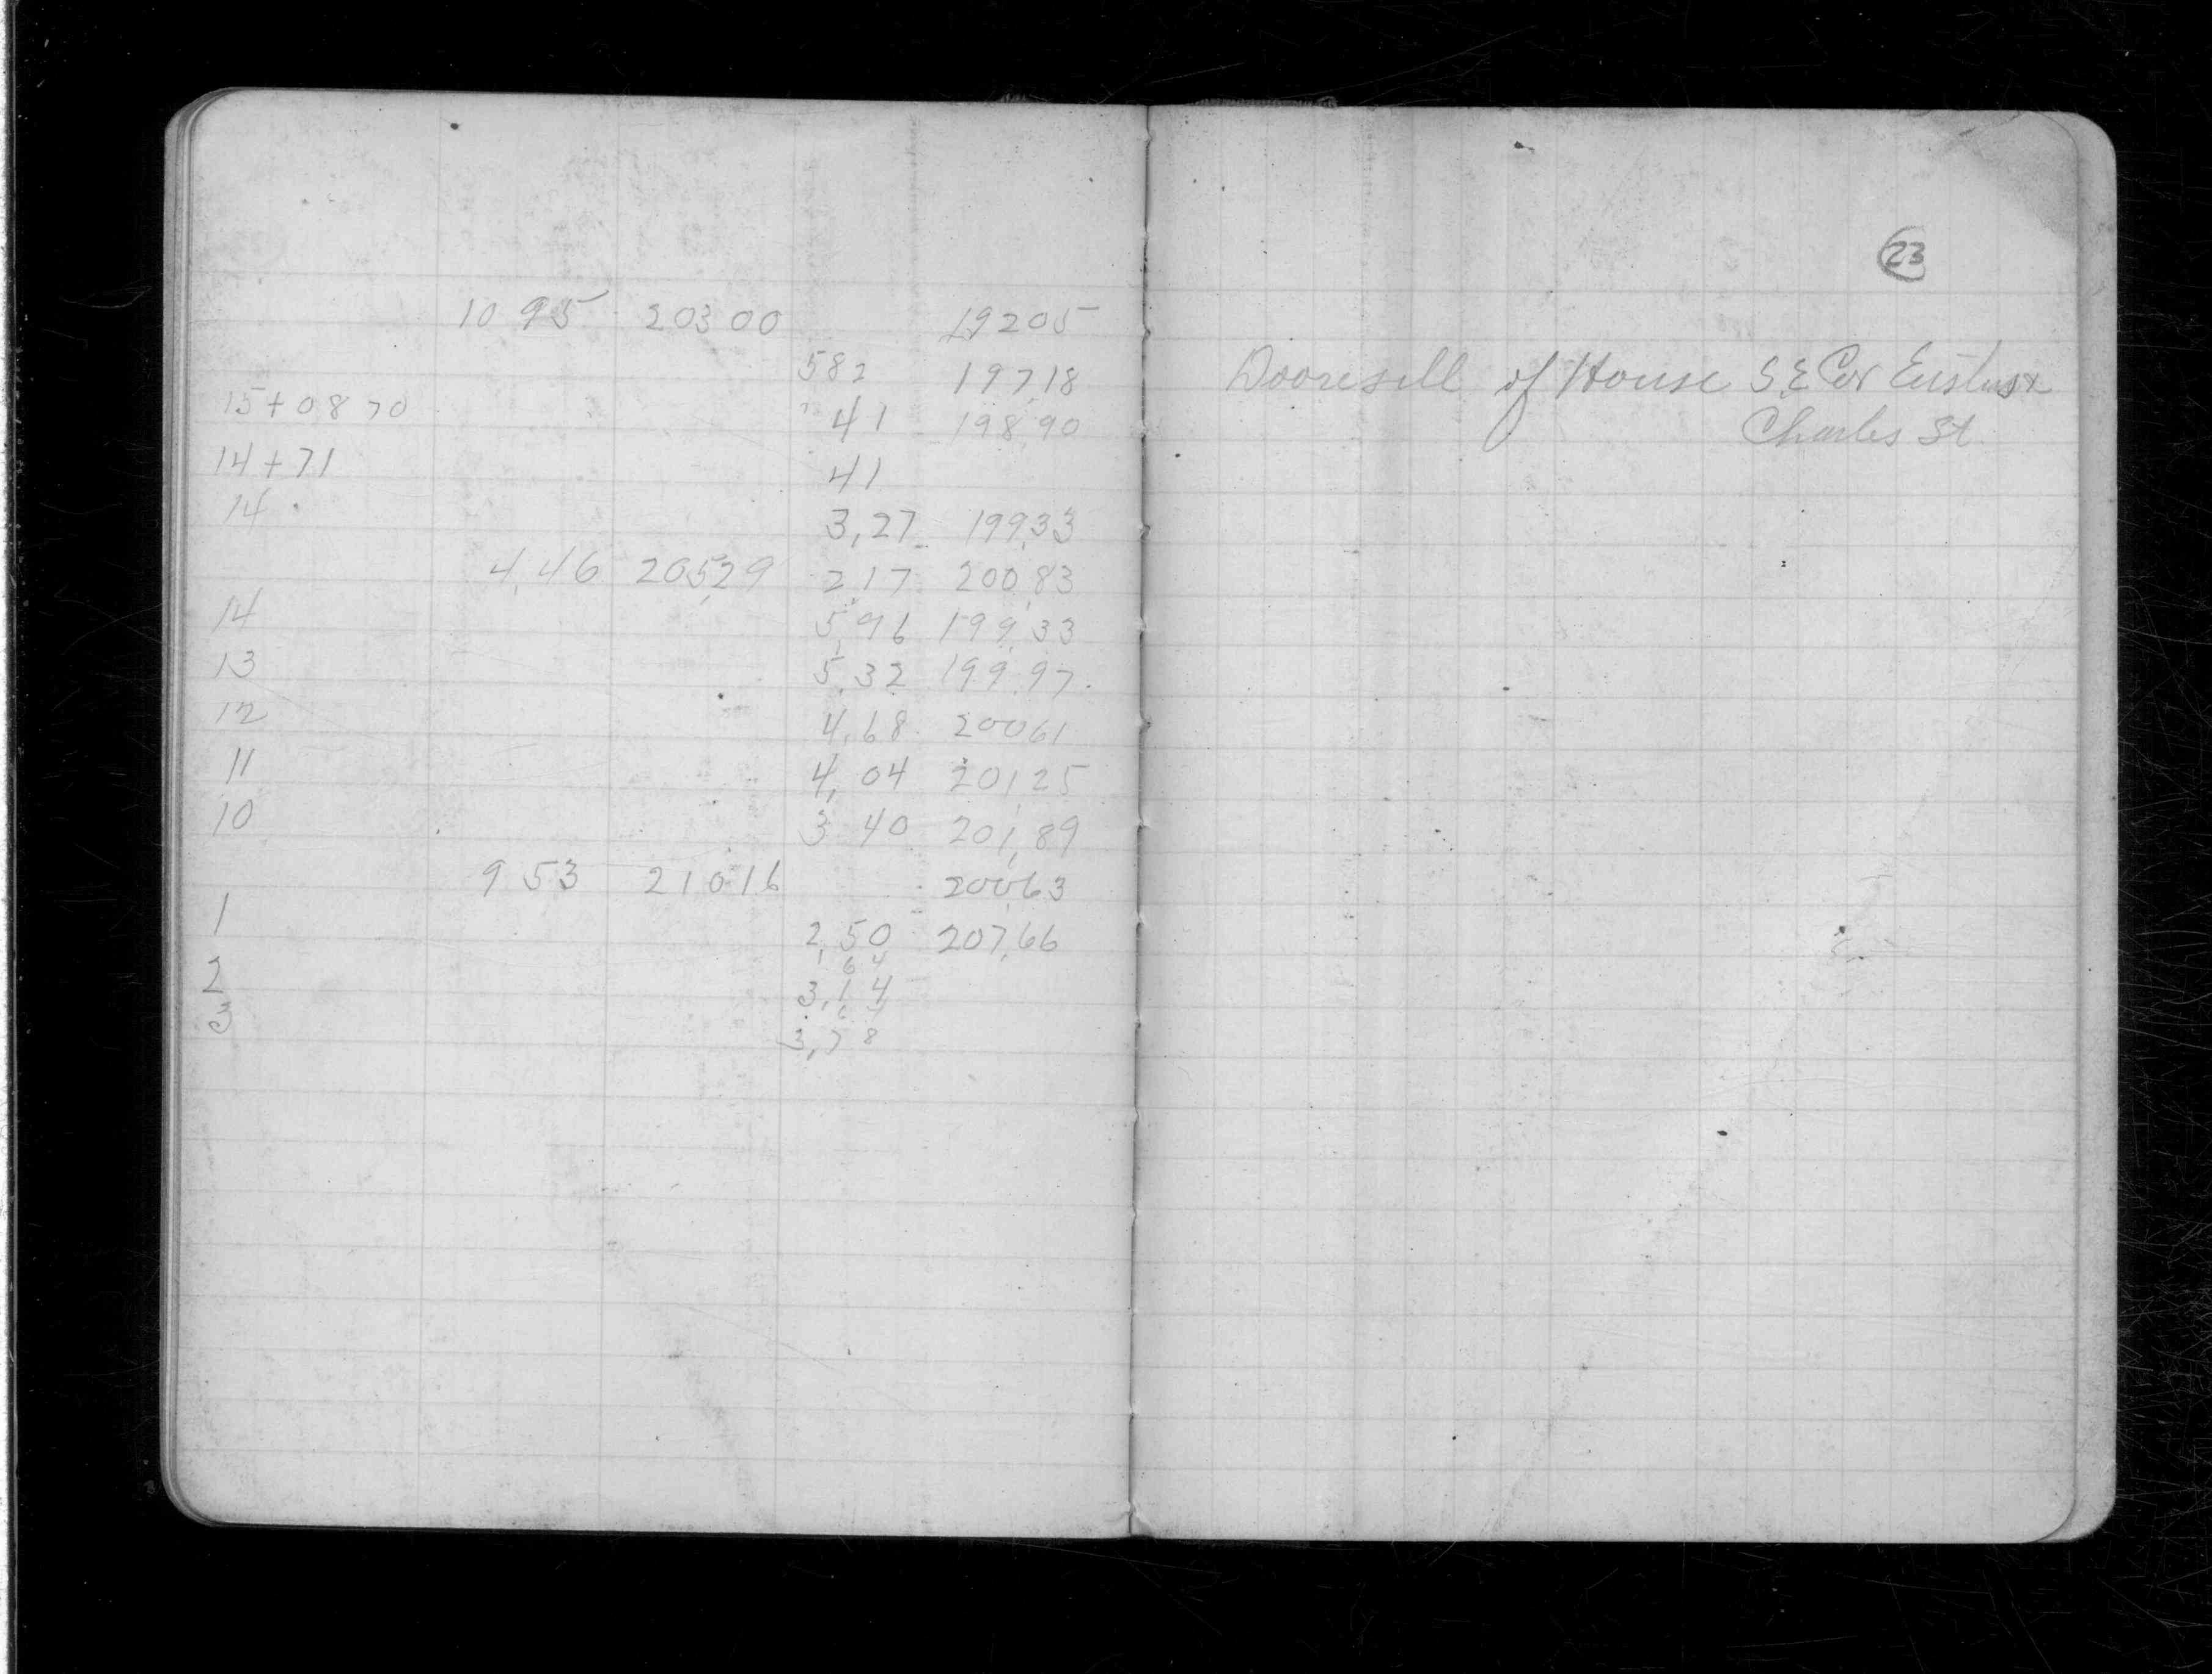 10 95 20300 19205
582 197,18
15+0870 41 198,90
14+71 41
14 3,27 199,33
4,46 205,29 2,17 200,83
14 5,96 199,33
13 5,32 199,97
12 4,68 20061
11 4,04 201,25
10 3 40 201,89
9 53 21016 200,63
1 2,50 207,66
64
2 3,14
3 3,78
23
Dooresill of House S.E Cor
Charles St.